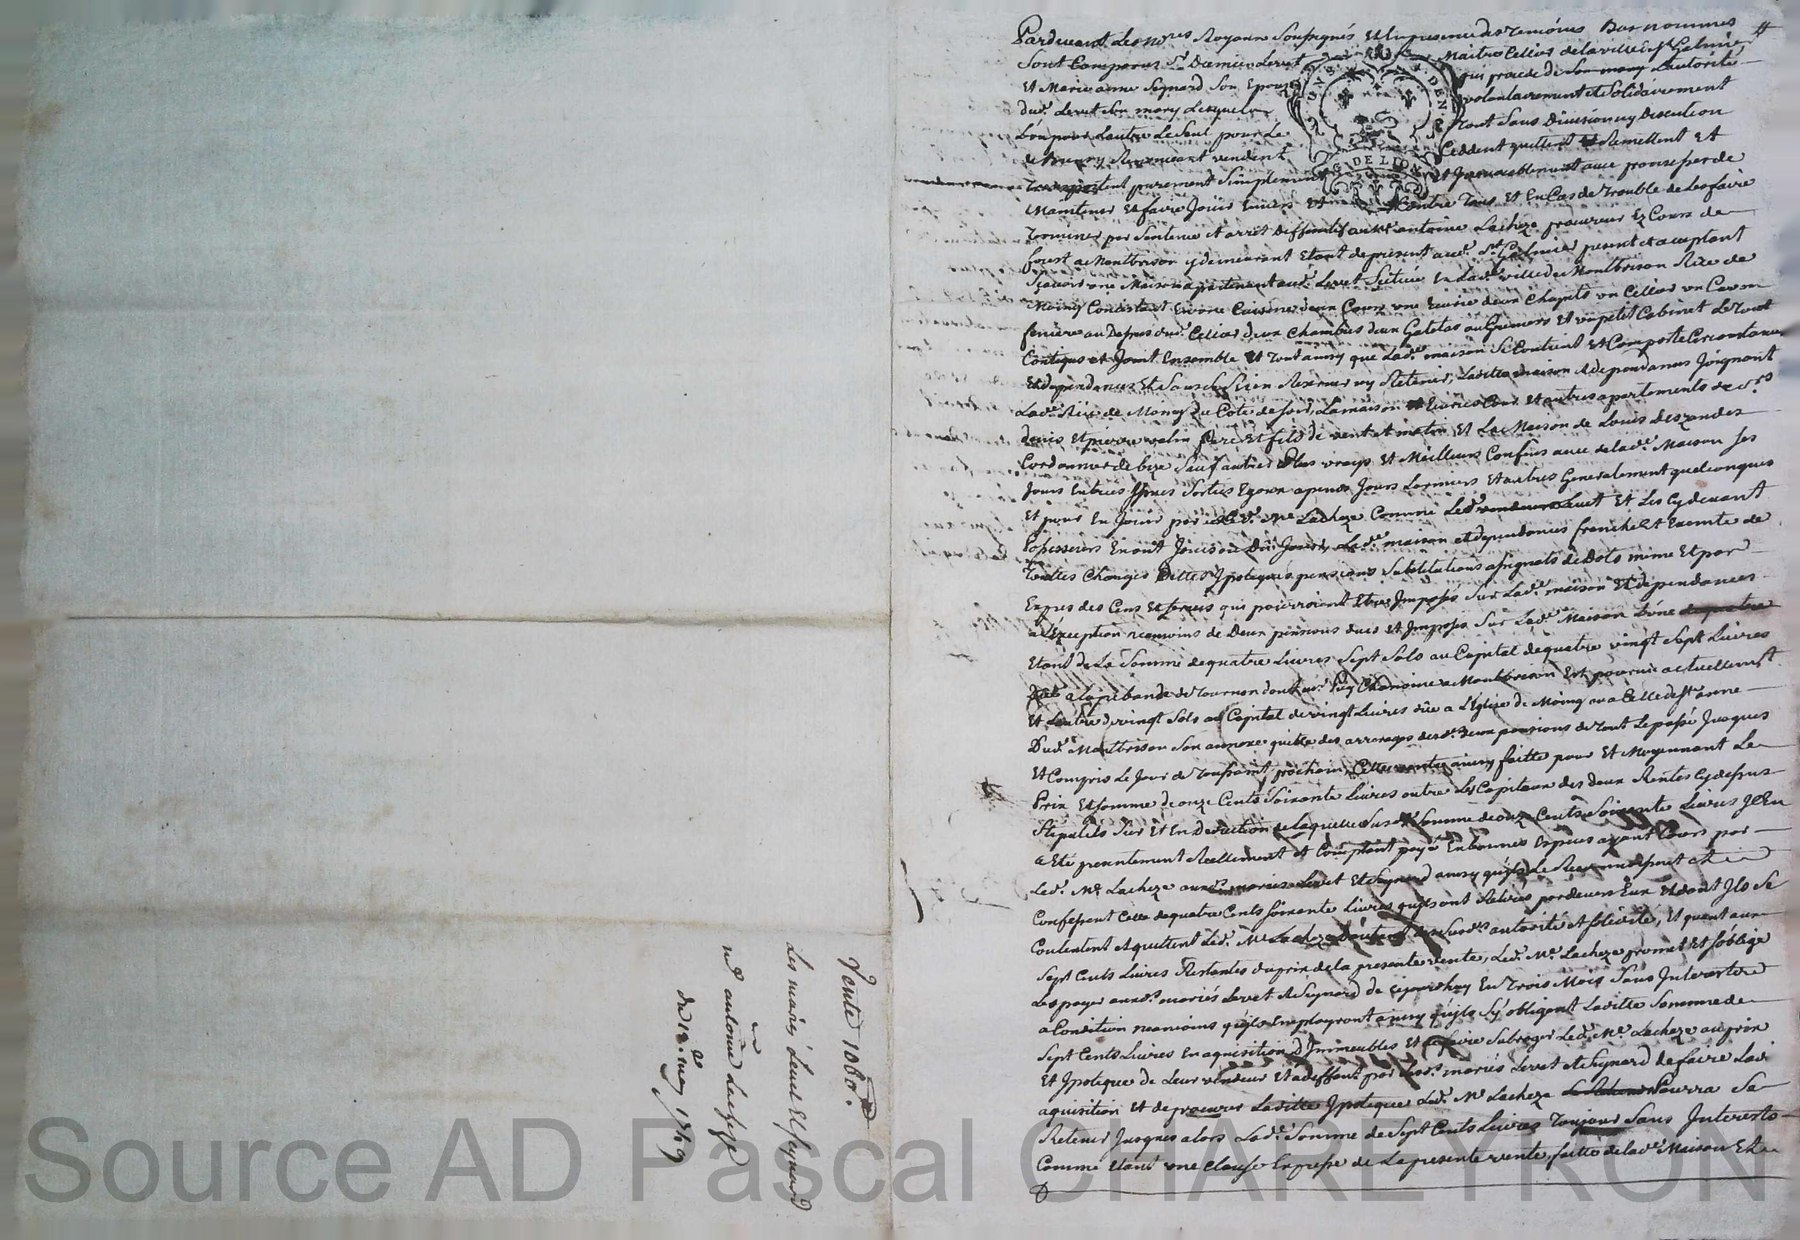 Pardevant Les nres Royaux Soussignés Et En presence des Temoins Bas nommés
Sont Comparus Sr Damien Levet Maitre Cellier de la ville de St Galmier
Et Marie anne Seynard Son Epouse qui procede de Son mary Lautorité
dud. Levet Son mary Lesquels volontairement et Solidairement
L'un pour Lautre Le Seul pour Le Tout Sans Division ny Discution
de Renonçant vendent Ceddent quittent Remettent Et
Transportent purement Simplement Et Irrevocablement avec promesse de
Maintenir Et faire Jouir Envers Et Contre Tous Et En Cas de Trouble de Les faire
Terminer par Sentence et arrêt Deffinitif a Me antoine Lacheze procureur Ez Cours de
forest a Montbrison y demeurant Etant de present aud. St Galmier present et aceptant
Sçavoir une Maison apartenant aud. Levet Scituée En Lade ville de Montbrison Rüe de
Moing Consistant En une Cuisine deux Cours une Ecurie deux Chapits un Cellier un Caveau
feniere au Dessus dud. Cellier deux Chambres deux Galetas ou Greniers Et un petit Cabinet Le Tout
Contigus et Joint Ensemble Et Tout ainsy que Lade maison Se Contient Et Comporte Circonstances
Et dependances Et Sans En Rien Reserver ny Retenir, Laditte maison et dependances Joignant
Lade Rüe de Moing du Coté de Soir, La maison Ecuries Cour Et autres apartements de Srs
denis Et pierre valin Pere Et fils de vent et matin Et La Maison de Louis deszandes
Cordonnier de bize Sauf autres Plus vrays Et Meilleurs Confins avec de lade Maison Ses
Jours Entrées Issues Sorties Egoux apends Jours Larmiers Et autres Generalement quelconques
Et pour En Jouir par Led. Me Lacheze Comme Led. Levet Et Les Cydevant
Possesseurs En ont Joui ou Dû Jouir, Lade maison et dependances franche Et Exemte de
Touttes Charges Dettes Ipoteques pensions Substitutions assignats de Dots même Et par
Expres des Cens Et Servis qui pourroient Etre Imposés Sur Lade maison Et dependances
a L'Exception neanmoins de Deux pensions dues Et Imposées Sur Lade Maison L'une
Etant de La Somme de quatre Livres Sept Sols au Capital de quatre vingt Sept Livres
a La prebande de Tournon dont mr Puy Chanoine a Montbrison Est pourvu actuellement
Et Lautre de vingt Sols au Capital de vingt Livres düe a L'Eglise de Moing ou a Celle de Ste anne
Dud. Montbrison Son annexe quitte des arrerages desd. Deux pensions de Tout Le passé Jusques
Et Compris Le Jour de Toussaint prochain, Cette vente ainsy faitte pour Et Moyennant Le
Prix Et Somme de onze Cents Soixante Livres outre Les Capitaux des deux Rentes Cydessus
Stipulés Sur Et En Deduction de Laquelle Susde Somme de onze Cents Soixante Livres Il En
a Eté presentement Reellement et Comptant payé En bonnes Especes ayant Cours par
Led. Me Lacheze auxd. mariés Levet Et Seynard ainsy qu'ils Le Reconnoissent et
Confessent Celle de quatre Cents Soixante Livres qu'ils ont Retirés pardevers Eux Et dont Ils Se
Contentent et quittent Led. Me Lacheze Susde autorité et Solidité, Et quant aux
Sept Cents Livres Restantes du prix de La presente vente, Led. Me Lacheze promet Et S'oblige
Les payer auxd. mariés Levet et Seynard de Cejourdhuy En Trois Mois Sans Interest
a Condition neanmoins qu'ils Employront ainsy qu'ils S'y obligent Laditte Somme de
Sept Cents Livres En aquisition d'Immeubles Et faire Subroger Led. Me Lacheze au prix
Et Ipoteque de Leur vendeur Et a deffaut par Lesd. mariés Levet et Seynard de faire Lad.
aquisition Et de procurer Laditte Ipoteque Led. Me Lacheze Pourra Se
Retenir Jusques alors Lade Somme de Sept Cents Livres Toujours Sans Interests
Comme Etant une Clause Expresse de La presente vente, faitte de lade Maison Et
Vente 1060tt.
Les mariés Levet Et Seynard
a
Me antoine Lacheze
du 12e may 1769
Source AD Pascal CHAREYRON